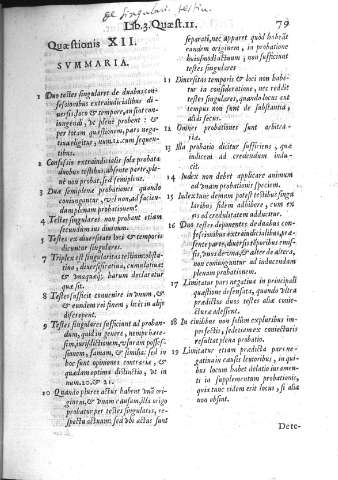 De singulari. testiu.
Lib.3. Quæst.11.
79
Quæstionis XII.
SVMMARIA.
1 Duo testes singulares de duabus confessionibus extraiudicialibus diuersis loco & tempore, an sint coniungendi, & plenè probent: & per totam quæstionem, pars negatiua eligitur, num. 21. cum sequentibus.
2 Confessio extraiudicialis sola probata duobus testibus, absente parte, plenè non probat, sed semiplenè.
3 Duæ semiplenæ probationes quando coniungantur, vel non, ad faciendam plenam probationem.
4 Testes singulares non probant etiam secundum ius diuinum.
5 Testes ex diuersitate loci & temporis dicuntur singulares.
7 Triplex est singularitas testium: obstatiua, diuersificatiua, cumulatiua: & vnaquæq; harum declaratur quæ sit.
8 Testes sufficit conuenire in vnum, & ad eundem rei finem, licèt in alijs discrepent.
9 Testes singulares sufficiunt ad probandum, quid in genere, nempe hæresim, iurisdictionem, vsuram possessionem, famam, & similia: sed in hoc sunt opiniones contrariæ, & quædam optima distinctio, de in num. 20. & 21.
10 Quando plures actus habent vnã originem, & vnam causam, istà origo probatur per testes singulares, respectu actuum: sed vbi actus sunt
separati, nec apparet quòd habeãt eandem originem, in probatione huiusmodi actuum, non sufficiunt testes singulares
11 Diuersitas temporis & loci non habetur in consideratione, nec reddit testes singulares, quando locus aut tempus non sunt de substantia, aliàs secus.
12 Omnes probationes sunt arbitrariæ.
13 Illa probatio dicitur sufficiens, quæ iudicem ad credendum inducit.
14 Iudex non debet applicare animum ad vnam probationis speciem.
15 Iudex tunc demum potest testibus singularibus fidem adhibere, cum ex his ad credulitatem adducitur.
16 Duo testes deponentes de duabus confessionibus extraiudicialibus, præsente parte, diuersis tẽporibus emissis, vnus de vna, & alter de altera, non coniunguntur ad inducendam plenam probationem.
17 Limitatur pars negatiua in principali quæstione defensata, quando vltra prædictos duos testes aliæ coniecturæ adessent.
18 De ciuilibus non solùm ex pluribus imperfectis, sed etiam ex coniecturis resultat plena probatio.
19 Limitatur etiam prædicta pars negatiua in causis leuioribus, in quibus locum habet delatio iuramenti in supplementum probationis, quia tunc eidem erit locus, si alia non obsint.
Dete-